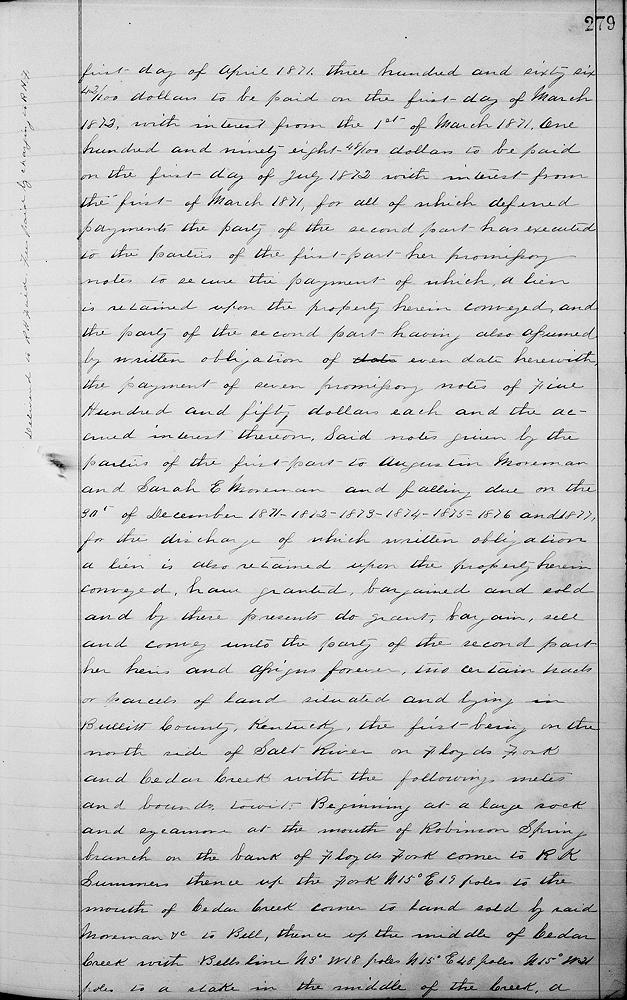 279
first day of April 1871. three hundred and sixty six
42/100 dollars to be paid on the first day of March
1872, with interest from the 1st of March 1871, One
hundred and ninety eight 48/100 dollars to be paid
on the first day of July 1872 with interest from
the first of March 1871, for all of which deferred
payments the party of the second part has executed
to the parties of the first part her promissory
notes to secure the payment of which, a lien
is retained upon the property herein conveyed, and
the party of the second part having also assumed
by written obligation of date even date herewith,
the payment of seven promissory notes of Five
Hundred and fifty dollars each and the ac-
crued interest thereon, Said notes given by the
parties of the first part to Augustin Moreman
and Sarah E Moreman and falling due on the
30t of December 1871-1872-1873-1874-1875-1876 and 1877,
for the discharge of which written obligation
a lien is also retained upon the property herein
conveyed, have granted, bargained and sold
and by these presents do grant, bargain, sell
and convey unto the party of the second part
her heirs and assigns forever, two certain tracts
or parcels of land situated and lying in
Bullitt County, Kentucky, the first being on the
north side of Salt River on Floyds Fork
and Cedar Creek with the followings metes
and bounds, towit: Beginning at a large rock
and sycamore at the mouth of Robinson Spring
branch on the bank of Floyds Fork corner to R K
Summers thence up the Fork N 15° E 19 poles to the
mouth of Cedar Creek corner to land sold by said
Moreman &c to Bell, thence up the middle of Cedar
Creek with Bells line N 3° W 18 poles N 15° E 48 poles N 15° W 21
poles to a stake in the middle of the Creek, a
Delivered to R H Field Fee paid by charging to R H F